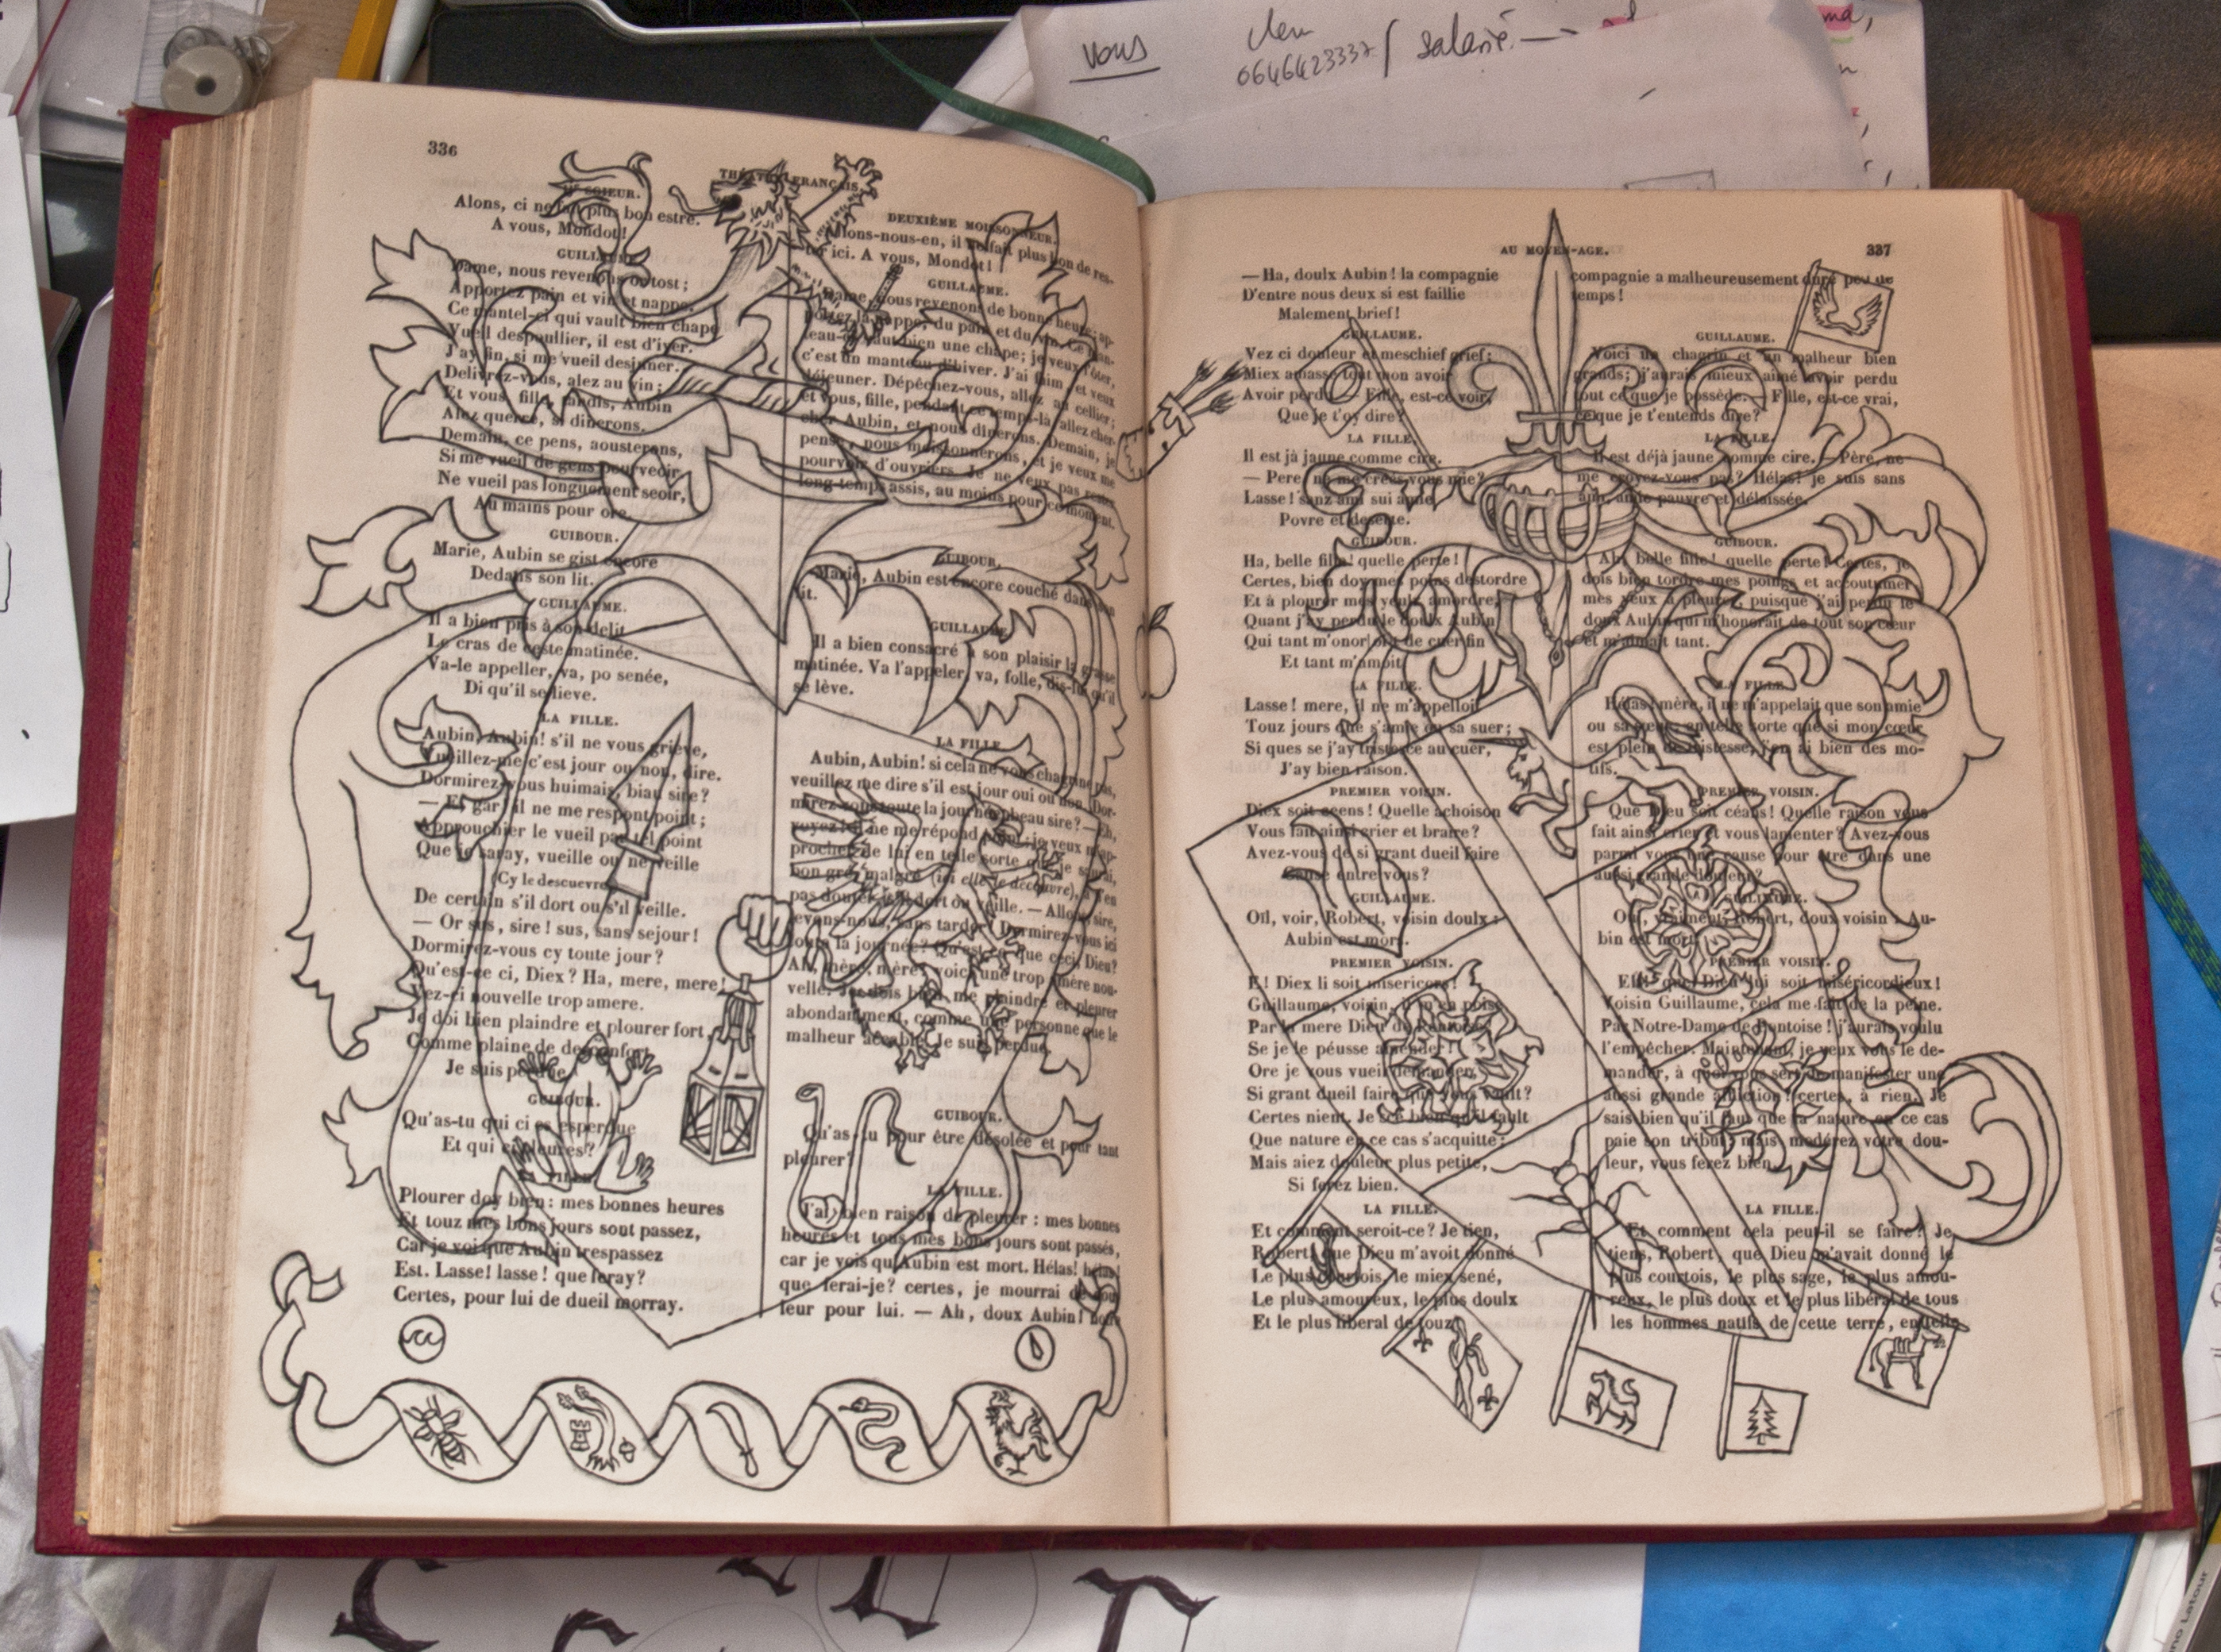 vous
0646423337 / salarié
336
THÉATRE FRANÇAIS
Alons, ci ne fait plus bon estre.
A vous, Mondot!
GUILLAUME.
Dame, nous revenons tost;
Apportez pain et vin et nappe.
Ce mantel-ci qui vault bien chape
Vueil despouillier, il est d'iver.
J'ay fin, si me vueil desjuner.
Delivrez-vous, alez au vin;
Et vous, fille, tandis, Aubin
Alez querre, si dinerons.
Demain, ce pens, aousterons,
Si me vueil de gens pourveoir,
Ne vueil pas longuement seoir,
Au mains pour ore.
GUIBOUR.
Marie, Aubin se gist encore
Dedans son lit.
GUILLAUME.
Il a bien pris à son delit
Le cras de ceste matinée.
Va-le appeller, va, po senée,
Di qu'il se lieve.
LA FILLE.
Aubin, Aubin! s'il ne vous grieve,
Vueillez-me c'est jour ou non, dire.
Dormirez-vous huimais, biau sire?
— Et gar! il ne me respont point;
Approuchier le vueil par tel point
Que je saray, vueille ou ne veille
(Cy le descuevre)
De certain s'il dort ou s'il veille.
— Or sus, sire! sus, sans sejour!
Dormirez-vous cy toute jour?
Qu'est-ce ci, Diex? Ha, mere, mere!
Vez-ci nouvelle trop amere.
Je doi bien plaindre et plourer fort,
Comme plaine de desconfort
Je suis perdue.
GUIBOUR.
Qu'as-tu qui ci es esperdue
Et qui si pleures?
LA FILLE.
Plourer doy bien: mes bonnes heures
Et touz mes bons jours sont passez,
Car je voi que Aubin trespassez
Est. Lasse! lasse! que feray?
Certes, pour lui de dueil morray.
DEUXIÈME MOISSONNEUR.
Allons-nous-en, il ne fait plus bon de res-
ter ici. A vous, Mondot!
GUILLAUME.
Dame, nous revenons de bonne heure; ap-
portez la nappe, du pain et du vin. Ce man-
teau-ci vaut bien une chape; je veux l'ôter,
c'est un manteau d'hiver. J'ai faim, et veux
déjeuner. Dépêchez-vous, allez au cellier;
et vous, fille, pendant ce temps-là, allez cher-
cher Aubin, et nous dînerons. Demain, je
pense, nous moissonnerons, et je veux me
pourvoir d'ouvriers. Je ne veux pas rester
long-temps assis, au moins pour ce moment.
GUIBOUR.
Marie, Aubin est encore couché dans son
lit.
GUILLAUME.
Il a bien consacré à son plaisir la grasse
matinée. Va l'appeler, va, folle, dis-lui qu'il
se lève.
LA FILLE.
Aubin, Aubin! si cela ne vous chagrine pas,
veuillez me dire s'il est jour oui ou non. Dor-
mirez-vous toute la journée, beau sire? — Eh,
voyez! il ne me répond point; je veux m'ap-
procher de lui en telle sorte que je saurai,
bon gré, malgré (ici elle le découvre), à n'en
pas douter, s'il dort ou veille. — Allons, sire,
levons-nous, sans tarder! Dormirez-vous ici
toute la journée? Qu'est-ce que ceci, Dieu?
Ah, mère, mère! voici une trop amère nou-
velle. Je dois bien me plaindre et pleurer
abondamment, comme une personne que le
malheur accable. Je suis perdue.
GUIBOUR.
Qu'as-tu pour être désolée et pour tant
pleurer?
LA FILLE.
J'ai bien raison de pleurer : mes bonnes
heures et tous mes bons jours sont passés,
car je vois qu'Aubin est mort. Hélas! hélas!
que ferai-je? certes, je mourrai de dou-
leur pour lui. — Ah, doux Aubin! notre
AU MOYEN-AGE.
337
— Ha, doulx Aubin! la compagnie
D'entre nous deux si est faillie
Malement brief!
GUILLAUME.
Vez ci douleur et meschief grief;
Miex amasse tout mon avoir
Avoir perdu. — Fille, est-ce voir,
Que je t'oy dire?
LA FILLE.
Il est jà jaune comme cire.
— Pere, ne me creez-vous mie?
Lasse! sanz ami sui amie,
Povre et deserte.
GUIBOUR.
Ha, belle fille! quelle perte!
Certes, bien doy mes poins destordre
Et à plourer mes yeulx amordre,
Quant j'ay perdu le doulx Aubin
Qui tant m'onoroit de cuer fin
Et tant m'amoit.
LA FILLE.
Lasse! mere, il ne m'appelloit
Touz jours que s'amie ou sa suer;
Si ques se j'ay tristesce au cuer,
J'ay bien raison.
PREMIER VOISIN.
Diex soit ceens! Quelle achoison
Vous fait ainsi crier et braire?
Avez-vous de si grant dueil faire
Cause entre vous?
GUILLAUME.
Oïl, voir, Robert, voisin doulx:
Aubin est mort.
PREMIER VOISIN.
E! Diex li soit misericors!
Guillaume, voisin, il m'en poise
Par la mere Dieu de Pontoise!
Se je le péusse amender!
Ore je vous vueil demander,
Si grant dueil faire que vous vault?
Certes nient. Je sçé bien qu'il fault
Que nature en ce cas s'acquitte;
Mais aiez douleur plus petite,
Si ferez bien.
LA FILLE.
Et comment seroit-ce? Je tien,
Robert, que Dieu m'avoit donné
Le plus courtois, le miex sené,
Le plus amoureux, le plus doulx
Et le plus liberal de touz
compagnie a malheureusement duré peu de
temps!
GUILLAUME.
Voici un chagrin et un malheur bien
grands; j'aurais mieux aimé avoir perdu
tout ce que je possède. — Fille, est-ce vrai,
ce que je t'entends dire?
LA FILLE.
Il est déjà jaune comme cire. — Père, ne
me croyez-vous pas? Hélas! je suis sans
ami, amie pauvre et délaissée.
GUIBOUR.
Ah, belle fille! quelle perte! Certes, je
dois bien tordre mes poings et accoutumer
mes yeux à pleurer, puisque j'ai perdu le
doux Aubin qui m'honorait de tout son cœur
et m'aimait tant.
LA FILLE.
Hélas! mère, il ne m'appelait que son amie
ou sa sœur; en telle sorte que si mon cœur
est plein de tristesse, j'en ai bien des mo-
tifs.
PREMIER VOISIN.
Que Dieu soit céans! Quelle raison vous
fait ainsi crier et vous lamenter? Avez-vous
parmi vous une cause pour être dans une
aussi grande douleur?
GUILLAUME.
Oui, vraiment, Robert, doux voisin: Au-
bin est mort.
PREMIER VOISIN.
Eh! que Dieu lui soit miséricordieux!
Voisin Guillaume, cela me fait de la peine.
Par Notre-Dame de Pontoise! j'aurais voulu
l'empêcher. Maintenant, je veux vous le de-
mander, à quoi vous sert de manifester une
aussi grande affliction? certes, à rien. Je
sais bien qu'il faut que la nature en ce cas
paie son tribut; mais modérez votre dou-
leur, vous ferez bien.
LA FILLE.
Et comment cela peut-il se faire? Je
tiens, Robert, que Dieu m'avait donné le
plus courtois, le plus sage, le plus amou-
reux, le plus doux et le plus libéral de tous
les hommes natifs de cette terre, en telle